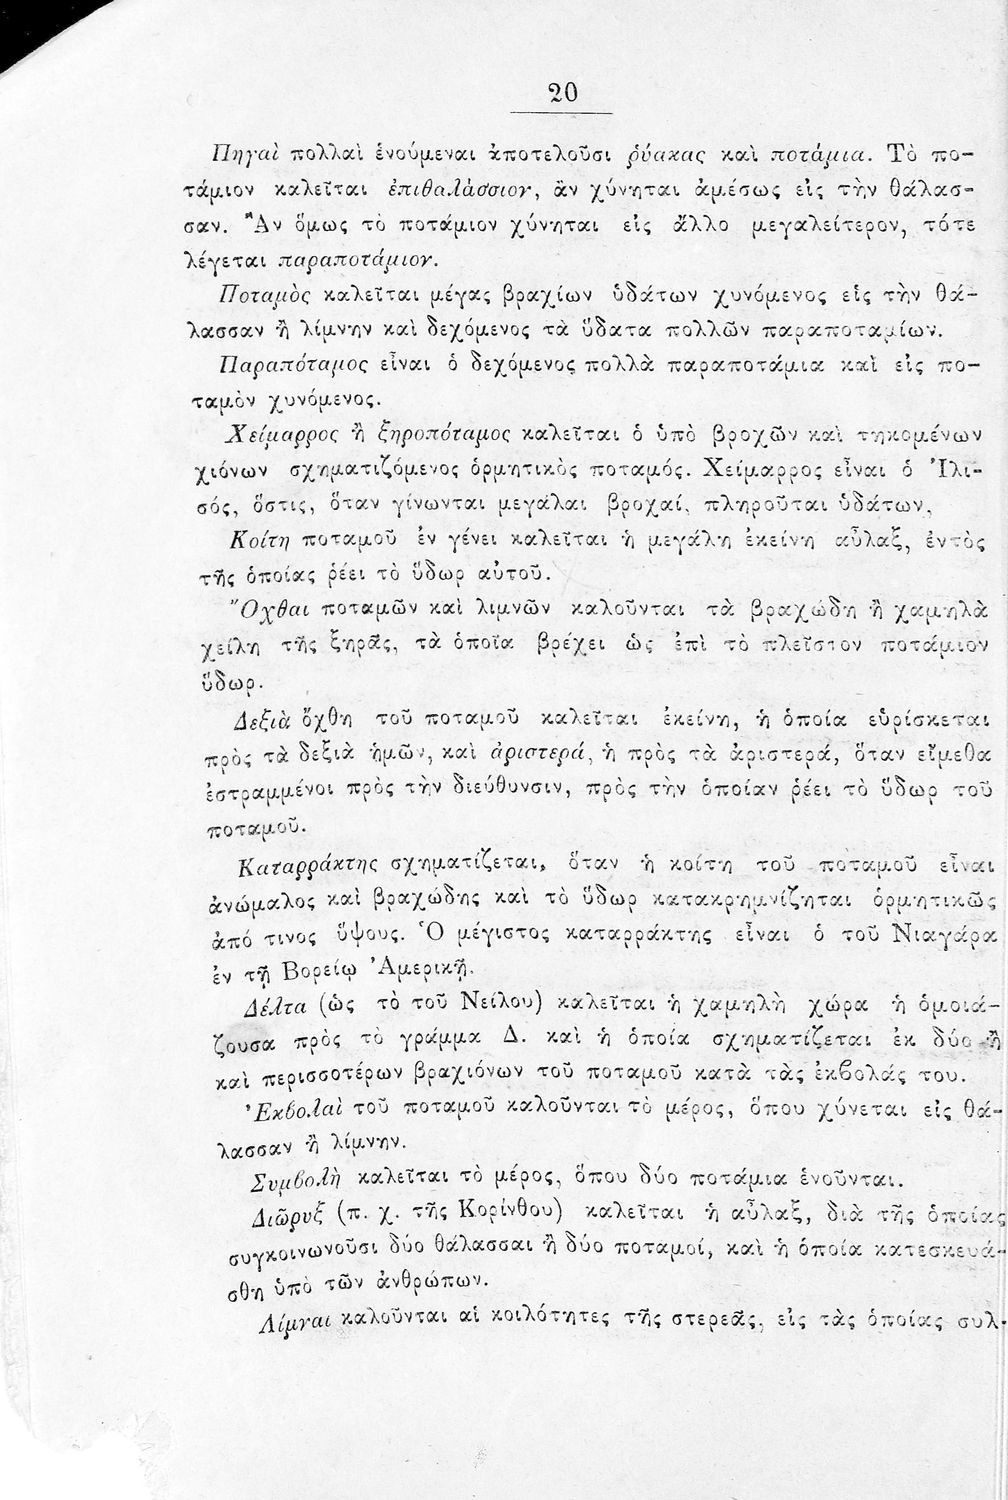 20
Πηγαὶ πολλαὶ ἑνούμεναι ἀποτελοῦσι ῥύακας καὶ ποτάμια. Τὸ πο-
τάμιον καλεῖται ἐπιθαλάσσιον, ἂν χύνηται ἀμέσως εἰς τὴν θάλασ-
σαν. Ἂν ὅμως τὸ ποτάμιον χύνηται εἰς ἄλλο μεγαλείτερον, τότε
λέγεται παραποτάμιον.
Ποταμὸς καλεῖται μέγας βραχίων ὑδάτων χυνόμενος εἰς τὴν θά-
λασσαν ἢ λίμνην καὶ δεχόμενος τὰ ὕδατα πολλῶν παραποταμίων.
Παραπόταμος εἶναι ὁ δεχόμενος πολλὰ παραποτάμια καὶ εἰς πο-
ταμὸν χυνόμενος.
Χείμαρρος ἢ ξηροπόταμος καλεῖται ὁ ὑπὸ βροχῶν καὶ τηκομένων
χιόνων σχηματιζόμενος ὁρμητικὸς ποταμός. Χείμαρρος εἶναι ὁ Ἰλι-
σός, ὅστις, ὅταν γίνωνται μεγάλαι βροχαί, πληροῦται ὑδάτων,
Κοίτη ποταμοῦ ἐν γένει καλεῖται ἡ μεγάλη ἐκείνη αὖλαξ, ἐντὸς
τῆς ὁποίας ῥέει τὸ ὕδωρ αὐτοῦ.
Ὄχθαι ποταμῶν καὶ λιμνῶν καλοῦνται τὰ βραχώδη ἢ χαμηλὰ
χείλη τῆς ξηρᾶς, τὰ ὁποῖα βρέχει ὡς ἐπὶ τὸ πλεῖστον ποτάμιον
ὕδωρ.
Δεξιὰ ὄχθη τοῦ ποταμοῦ καλεῖται ἐκείνη, ἡ ὁποία εὑρίσκεται
πρὸς τὰ δεξιὰ ἡμῶν, καὶ ἀριστερά, ἡ πρὸς τὰ ἀριστερά, ὅταν εἴμεθα
ἐστραμμένοι πρὸς τὴν διεύθυνσιν, πρὸς τὴν ὁποίαν ῥέει τὸ ὕδωρ τοῦ
ποταμοῦ.
Καταρράκτης σχηματίζεται, ὅταν ἡ κοίτη τοῦ ποταμοῦ εἶναι
ἀνώμαλος καὶ βραχώδης καὶ τὸ ὕδωρ κατακρημνίζηται ὁρμητικῶς
ἀπό τινος ὕψους. Ὁ μέγιστος καταρράκτης εἶναι ὁ τοῦ Νιαγάρα
ἐν τῇ Βορείῳ Ἀμερικῇ.
Δέλτα (ὡς τὸ τοῦ Νείλου) καλεῖται ἡ χαμηλὴ χώρα ἡ ὁμοιά-
ζουσα πρὸς τὸ γράμμα Δ. καὶ ἡ ὁποία σχηματίζεται ἐκ δύο ἢ
καὶ περισσοτέρων βραχιόνων τοῦ ποταμοῦ κατὰ τὰς ἐκβολάς του.
Ἐκβολαὶ τοῦ ποταμοῦ καλοῦνται τὸ μέρος, ὅπου χύνεται εἰς θά-
λασσαν ἢ λίμνην.
Συμβολὴ καλεῖται τὸ μέρος, ὅπου δύο ποτάμια ἑνοῦνται.
Διῶρυξ (π. χ. τῆς Κορίνθου) καλεῖται ἡ αὖλαξ, διὰ τῆς ὁποίας
συγκοινωνοῦσι δύο θάλασσαι ἢ δύο ποταμοί, καὶ ἡ ὁποία κατεσκευά-
σθη ὑπὸ τῶν ἀνθρώπων.
Λίμναι καλοῦνται αἱ κοιλότητες τῆς στερεᾶς, εἰς τὰς ὁποίας συλ-